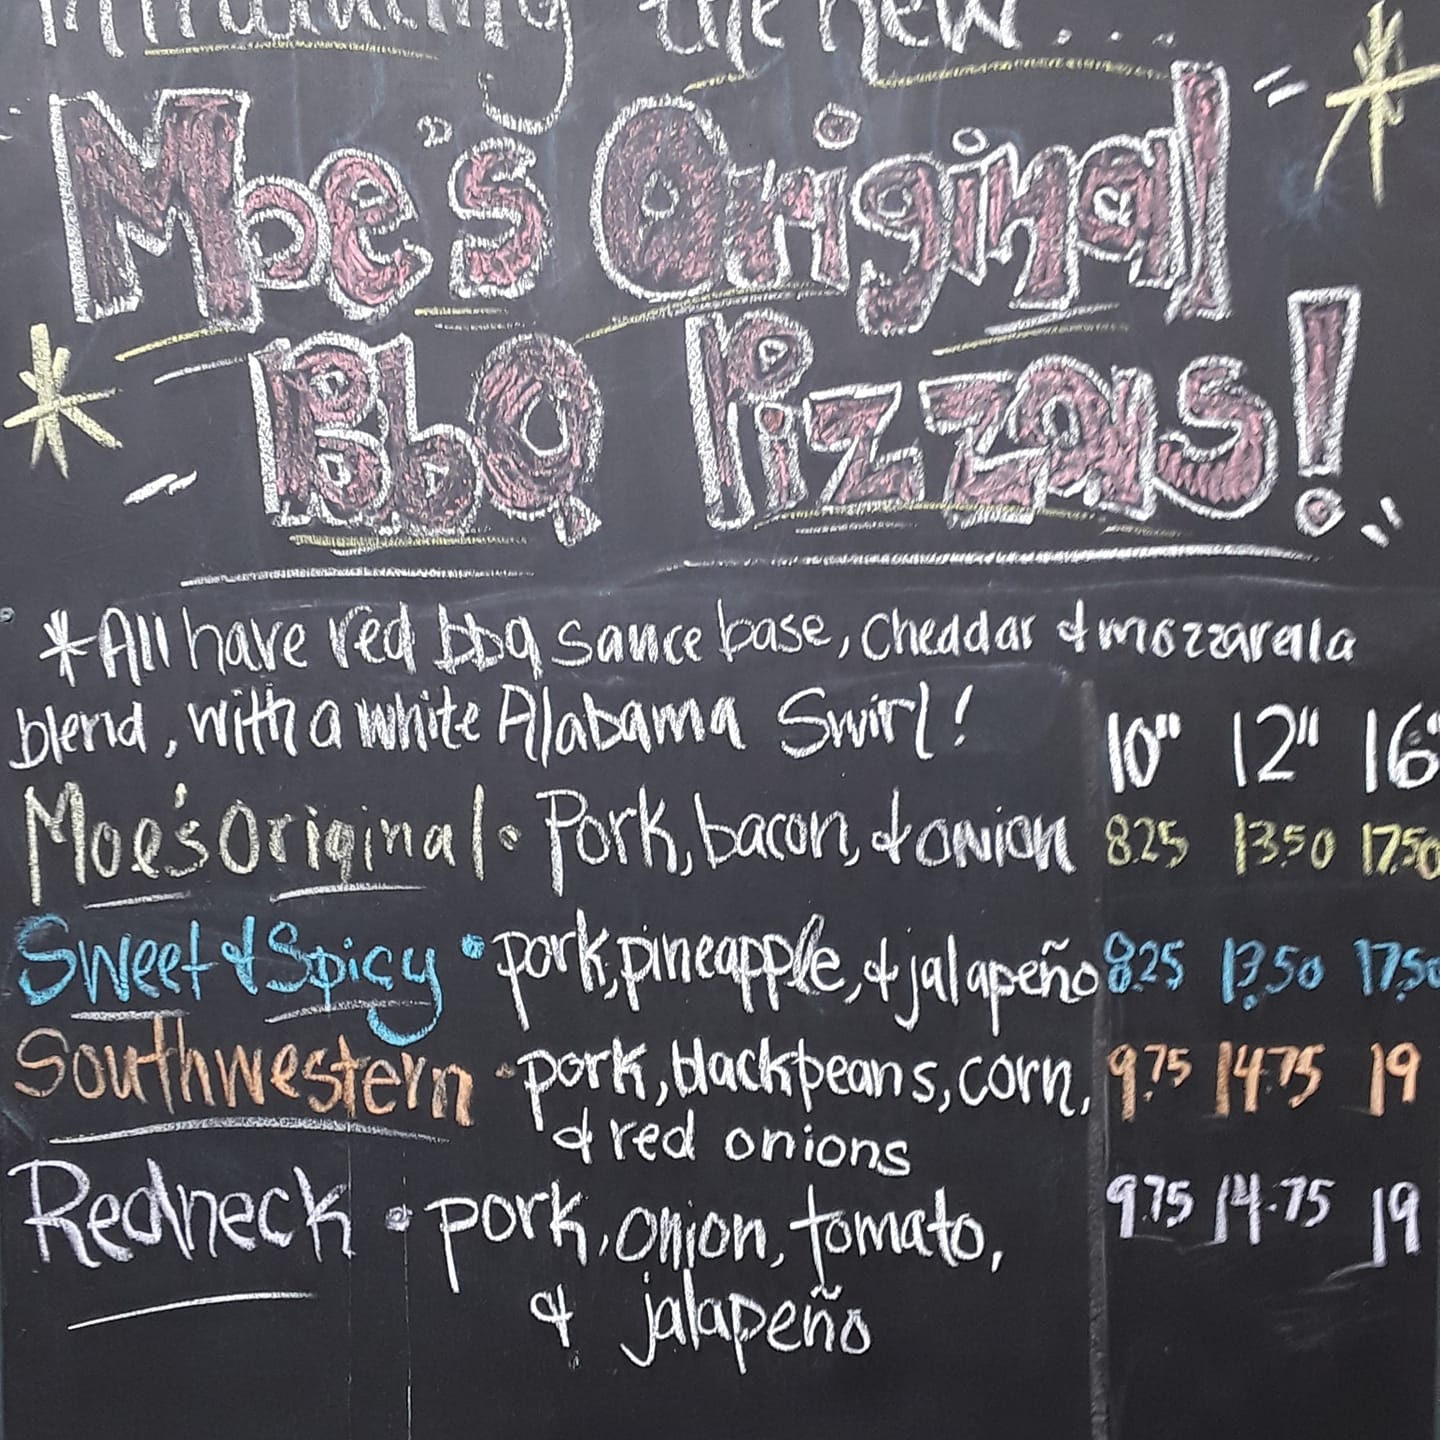 Introducing the new...
Moe's Original
BbQ Pizzas!
*All have red bbq sauce base, Cheddar & mozzarala
blend, with a white Alabama Swirl!
10" 12" 16"
Moe's Original • Pork, bacon, & onion 8.25 13.50 17.50
Sweet & Spicy • pork, pineapple, & jalapeño 8.25 13.50 17.50
Southwestern • pork, black beans, corn, 9.75 14.75 19
& red onions
Redneck • pork, onion, tomato, 9.75 14.75 19
& jalapeño